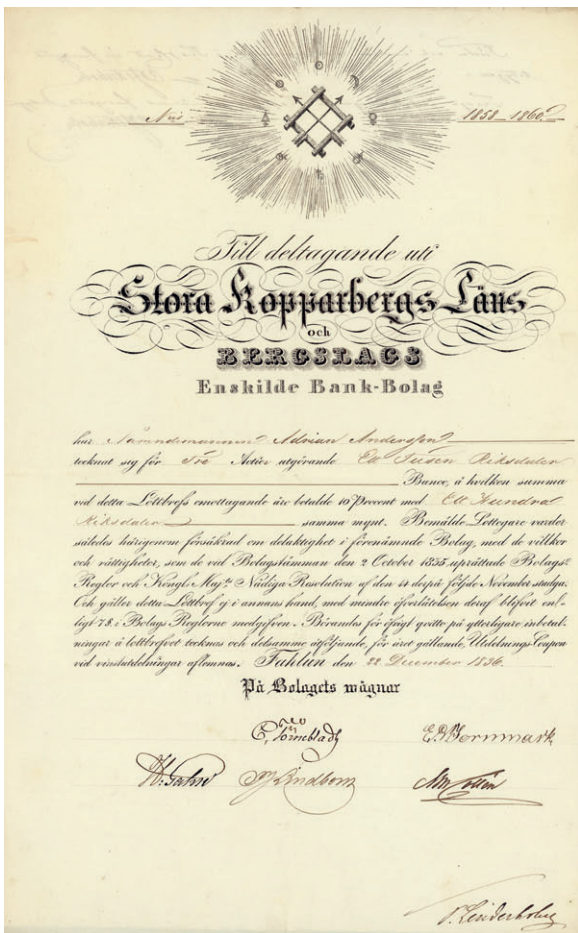 N:is 1858–1860.
Till deltagande uti
Stora Kopparbergs Läns
och
BERGSLAGS
Enskilde Bank-Bolag
har Nämndemannen Adrian Andersson
tecknat sig för Tre Actier utgörande Ett Tusen Riksdaler
Banco, å hvilken summa
vid detta Lottbrefs emottagande äro betalde 10 Procent med Ett Hundra
Riksdaler samma mynt. Bemälde Lottegare varder
således härigenom försäkrad om delaktighet i förenämnde Bolag, med de villkor
och rättigheter, som de vid Bolagsstämman den 2 October 1835 uprättade Bolags-
Reglor och Kongl. Maj:ts Nådiga Resolution af den 21 derpå följde November stadga.
Och gäller detta Lottbref ej i annans hand, med mindre öfverlåtelsen deraf blifvit en-
ligt 7 §. i Bolags Reglorne medgifven. Börandes för öfrigt qvitto på ytterligare inbetal-
ningar å lottbrefvet tecknas och detsamma åtföljande, för året gällande, Utdelnings-Coupon
vid vinstutdelningar aflemnas. Fahlun den 22 December 1836.
På Bolagets wägnar
C. Törneblad
E. Wernmark
Lindbom